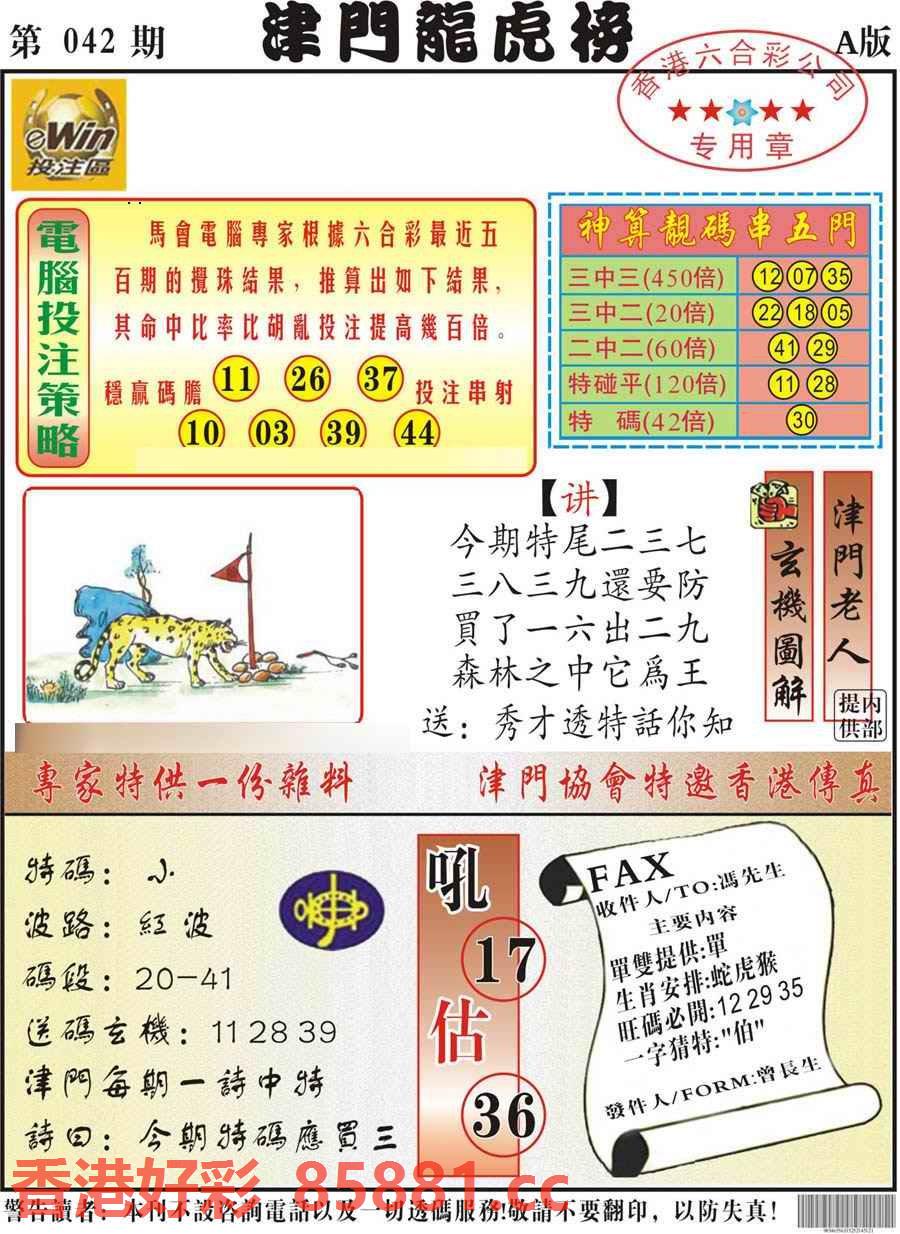 第 042 期
津門龍虎榜
A版
香港六合彩公司
专用章
eWin
投注區
電腦投注策略
馬會電腦專家根據六合彩最近五
百期的攪珠結果，推算出如下結果，
其命中比率比胡亂投注提高幾百倍。
穩贏碼膽 11 26 37 投注串射
10 03 39 44
神算靚碼串五門
三中三(450倍) 12 07 35
三中二(20倍) 22 18 05
二中二(60倍) 41 29
特碰平(120倍) 11 28
特 碼(42倍) 30
【讲】
今期特尾二三七
三八三九還要防
買了一六出二九
森林之中它爲王
送：秀才透特話你知
玄機圖解
津門老人
提供
内部
專家特供一份雜料
津門協會特邀香港傳真
特碼：小
波路：紅波
碼段：20-41
送碼玄機：11 28 39
津門每期一詩中特
詩曰：今期特碼應買三
吼
17
估
36
FAX
收件人/TO:馮先生
主要内容
單雙提供:單
生肖安排:蛇虎猴
旺碼必開:12 29 35
一字猜特:"伯"
發件人/FORM:曾長生
香港好彩 85881.cc
警告讀者：本刊不設咨詢電話以及一切透碼服務!敬請不要翻印，以防失真!